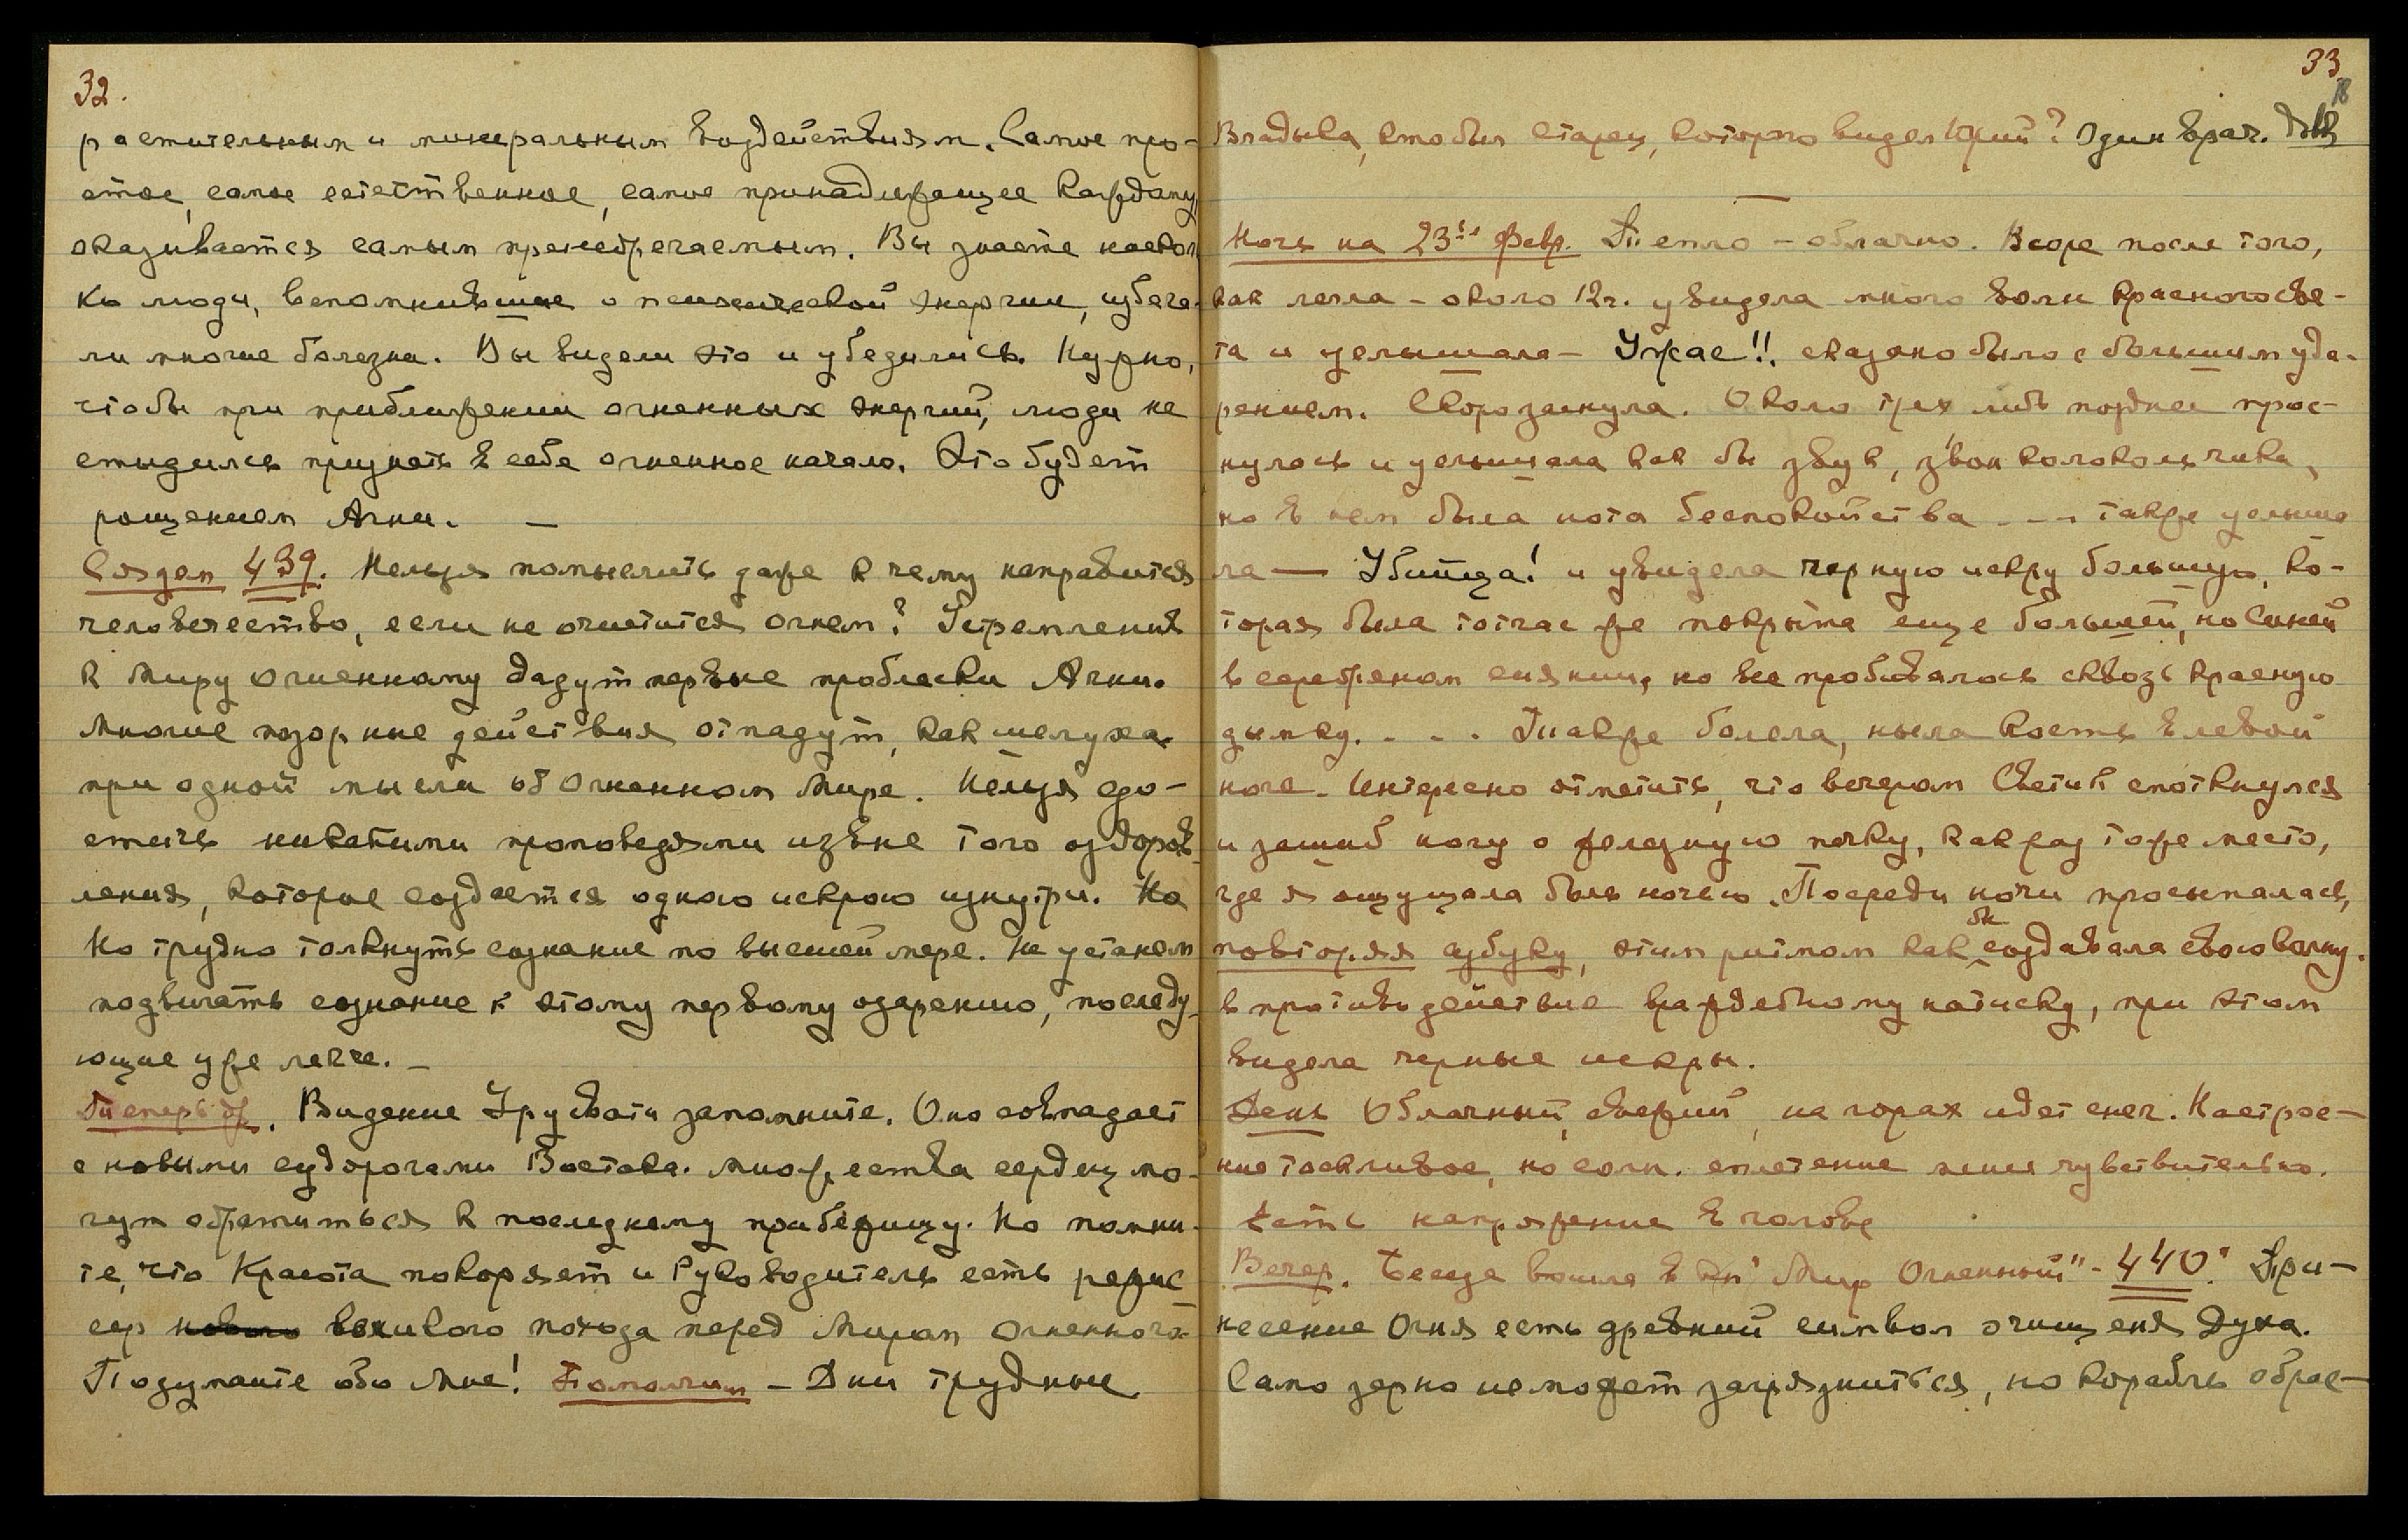 32.
растительным и минеральным воздействиям. Самое про-
стое, самое естественное, самое принадлежащее каждому
оказывается самым пренебрегаемым. Вы знаете насколь
ко люди, вспомнившие о психической энергии, избега-
ли многие болезни. Вы видели это и убедились. Нужно,
чтобы при приближении огненных энергий, люди не
стыдились признать в себе огненное начало. Это будет
рощением Агни. —
Создам 439. Нельзя помыслить даже к чему направится
человечество, если не очистится огнем? Устремления
к миру огненному дадут первые проблески Агни.
Многие позорные действия отпадут, как шелуха
при одной мысли об Огненном Мире. Нельзя до-
стичь никакими проповедями извне того оздоров-
ления, которое создается одною искрою изнутри. Но
Но трудно толкнуть сознание по высшей мере. Не устанем
подвигать сознание к этому первому озарению, последу-
ющие уже легче. —
Теперь др. Видение Урусвати запомните. Оно совпадает
с новыми судорогами Востока. Множества сердец мо-
гут обратиться к последнему прибежищу. Но помни-
те, что Красота покоряет и Руководитель есть режис-
сер нового великого похода перед Миром Огненного
Подумайте обо Мне! Помолчим — Дни трудные
33
18
Владыка, кто был старец, которого видел Юрий? Один врач.
Ночь на 23ье февр. Тепло – облачно. Вскоре после того,
как легла – около 12ч. увидела много волн красного све-
та и услышала – Ужас!!. сказано было с большим уда-
рением. Скоро заснула. Около трех либо позднее прос-
нулась и услышала как бы звук, звон колокольчика,
но в нем была нота беспокойства - - - также услыша
ла — Убийца! и увидела черную искру большую, ко-
торая была тотчас же покрыта еще большей, но синей
в серебряном сиянии, но все пробивалось сквозь красную
дымку. . . . Также болела, ныла кость в левой
ноге. Интересно отметить, что вечером Светик споткнулся
и зашиб ногу о железную печку, как раз то же место,
где я ощущала боль ночью. Посреди ночи просыпалась,
повторяя азбуку, этим ритмом как бы создавала свою волну.
в противодействие враждебному натиску, при этом
видела черные искры.
День Облачный, свежий, на горах идет снег. Настрое-
ние тоскливое, но солн. сплетение менее чувствительно.
Есть напряжение в голове
Вечер. Беседа вошла в кн "Мир Огненный" - 440." При-
несение Огня есть древний символ очищеня Духа.
Само зерно не может загрязниться, но корабль обрас-